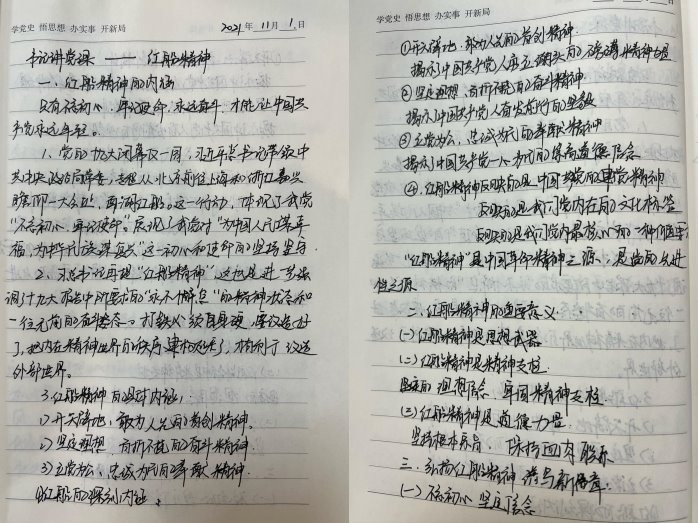 学党史 悟思想 办实事 开新局
2021年11月1日
书记讲党课——红船精神
一、红船精神的内涵
只有不忘初心、牢记使命、永远奋斗,才能让中国共
产党永远年轻。
1、党的十九大闭幕仅一周,习近平总书记带领中
共中央政治局常委,专程从北京前往上海和浙江嘉兴
瞻仰一大会址,再访红船,这一行动,体现了我党
“不忘初心、牢记使命”展现了我党对“为中国人民谋幸
福,为中华民族谋复兴”这一初心和使命的坚持坚守
2、习总书记再提“红船精神”,这也是进一步强
调了十九大报告中所要求的“永不懈怠”的精神状态和
一往无前的奋斗姿态。打铁必须自身硬,
了,把内在精神世界的
外部世界。
3、红船精神的
1)开天辟地、敢为人先的首创精神.
2)坚定理想、百折不挠的奋斗精神.
3)立党为公、忠诚为民的奉献精神
红船的深刻内涵:
学党史 悟思想 办实事 开新局
①开天辟地、敢为人先的首创精神.
揭示了中国共产党人
②坚定理想、百折不挠的奋斗精神
揭示了中国共产党人
③立党为公、忠诚为民的奉献精神
揭示了中国共产党人 的崇高道德
④红船精神反映的是中国共产党的建党精神
反映的是我们党内在的文化标签
反映的是我们党内最核心的一种价值
“红船精神”是中国革命精神之源,
性之源
二、红船精神的重要意义:
(一)红船精神是思想武器
(二)红船精神是精神支柱
坚定的理想信念、牢固精神支柱
(三)红船精神是道德力量
坚持根本宗旨、保持血肉联系
三、弘扬红船精神 谱写新篇章.
(一)不忘初心 坚定信念